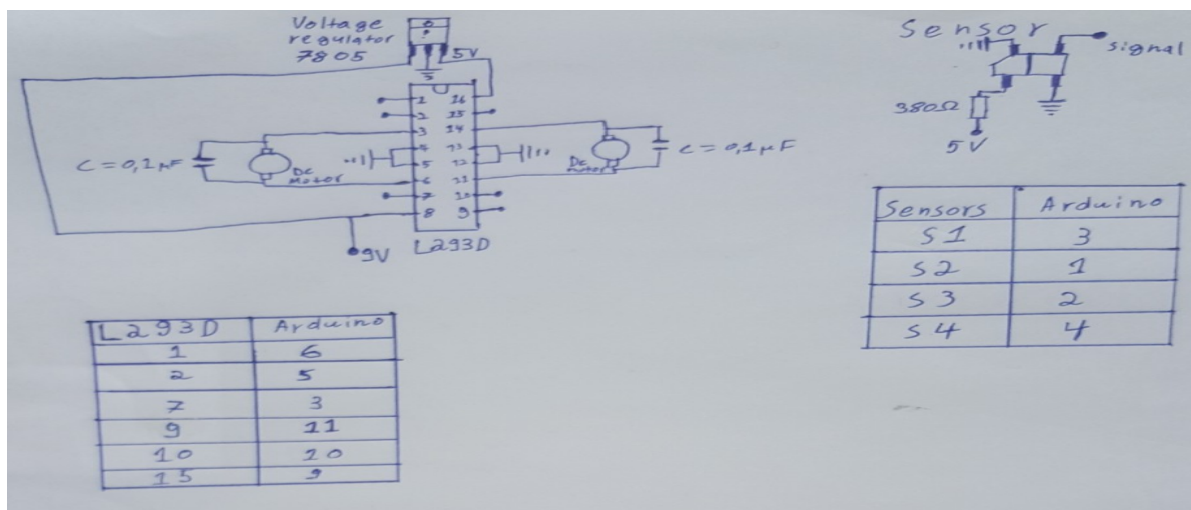 Voltage
regulator
7805
5V
1 16
2 15
3 14
4 13
5 12
6 11
7 10
8 9
L293D
C=0,1µF
DC
Motor
DC
motor
C=0,1µF
9V
Sensor
signal
380Ω
5V
Sensors Arduino
S1 3
S2 1
S3 2
S4 4
L293D Arduino
1 6
2 5
7 3
9 11
10 10
15 9